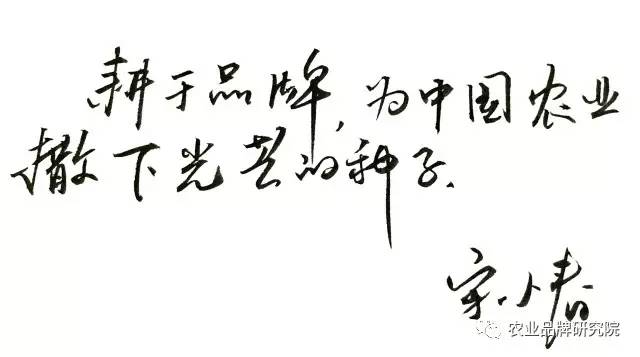 耕于品牌，为中国农业
撒下光芒的种子.
宋小春
农业品牌研究院